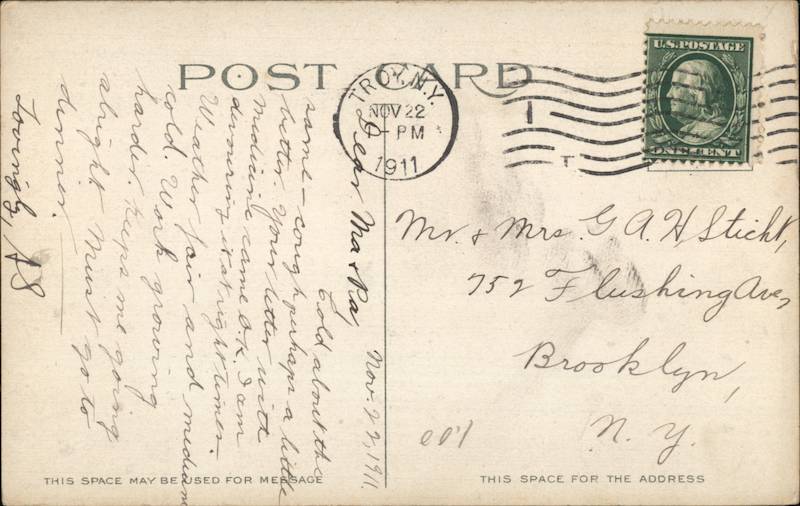 POST CARD
TROY, N.Y.
NOV 22
- PM
1911
U.S. POSTAGE
ONE CENT
Nov. 22, 1911.
Dear Ma & Pa
Cold about the
same - cough perhaps a little
better. Your letter with
medicine came O.K. I am
devouring it at right times.
Weather fair and medium
cold. Work growing
harder. Keeps me going
alright. Must go to
dinner.
Lovingly, AS
Mr. & Mrs. G A. H Sticht,
752 Flushing Ave,
Brooklyn,
N. Y.
1.00
THIS SPACE MAY BE USED FOR MESSAGE
THIS SPACE FOR THE ADDRESS